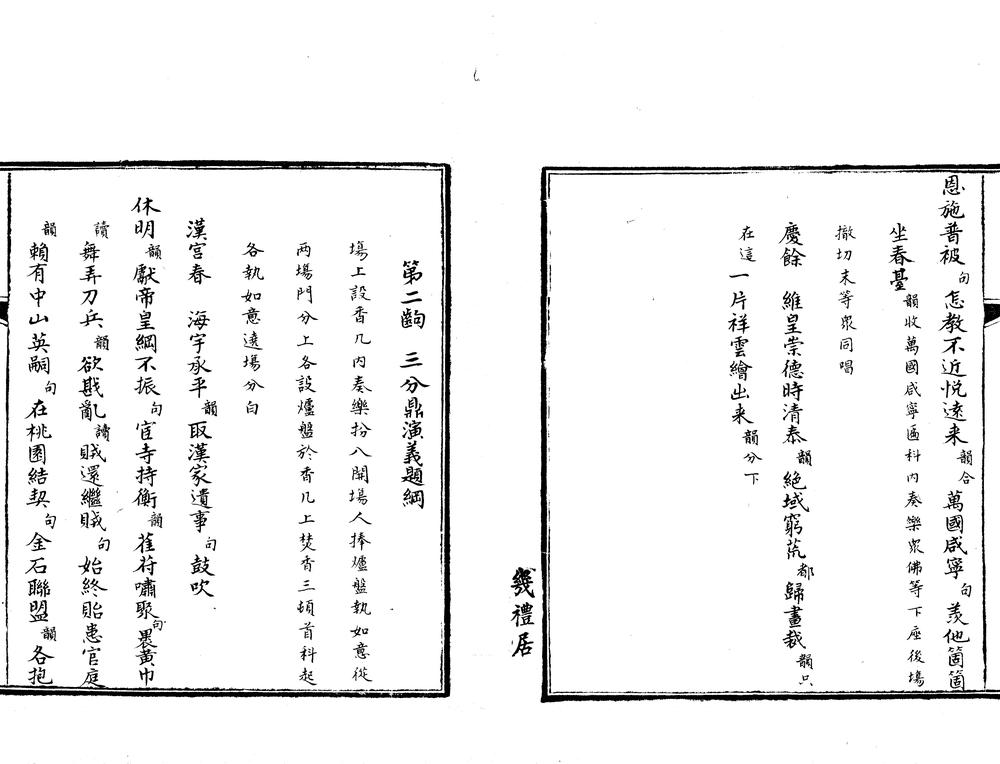 恩施普被句怎教不近悅遠来韻合萬國咸寧句羡他箇箇
坐春臺韻收萬國咸寧區科内奏樂衆佛等下座後場
撤切末等衆同唱
慶餘　維皇崇德時清泰韻絕域窮荒都歸畫裁韻只
在這一片祥雲繪出来韻分下
幾禮居
第二齣　三分鼎演義題綱
場上設香几内奏樂扮八開場人捧爐盤執如意從
两場門分上各設爐盤於香几上焚香三頓首科起
各執如意遶場分白
漢宮春　海宇承平韻取漢家遺事句鼓吹
休明韻獻帝皇綱不振句宦寺持衡韻萑苻嘯聚句褁黄巾
讀舞弄刀兵韻欲戡亂讀賊還繼賊句始終貽患官庭
韻賴有中山英嗣句在桃園結契句金石聯盟韻各抱